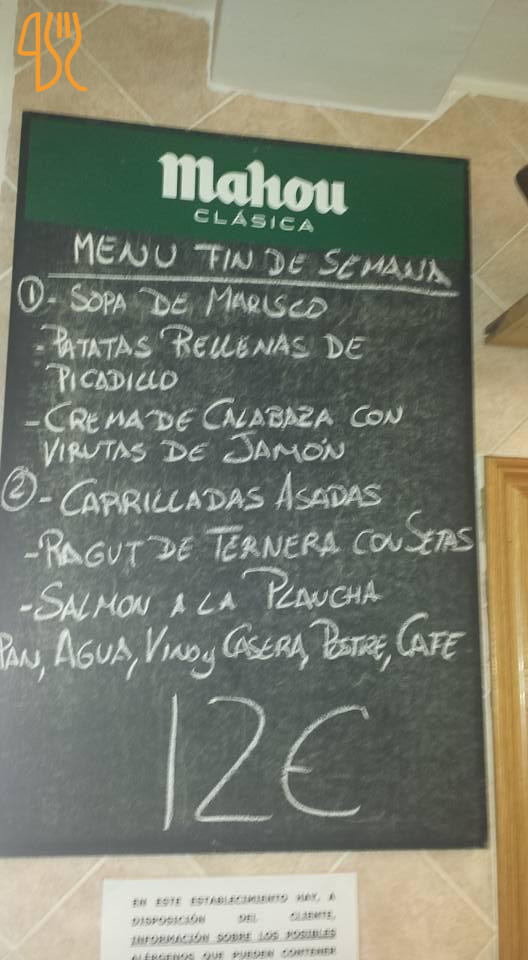 Mahou
CLÁSICA
MENU FIN DE SEMANA
①- SOPA DE MARISCO
- PATATAS RELLENAS DE
PICADILLO
- CREMA DE CALABAZA CON
VIRUTAS DE JAMÓN
②- CARRILLADAS ASADAS
- RAGUT DE TERNERA CON SETAS
- SALMON A LA PLANCHA
PAN, AGUA, VINO y CASERA, POSTRE, CAFE
12€
EN ESTE ESTABLECIMIENTO HAY, A
DISPOSICIÓN DEL CLIENTE,
INFORMACIÓN SOBRE LOS POSIBLES
ALÉRGENOS QUE PUEDEN CONTENER